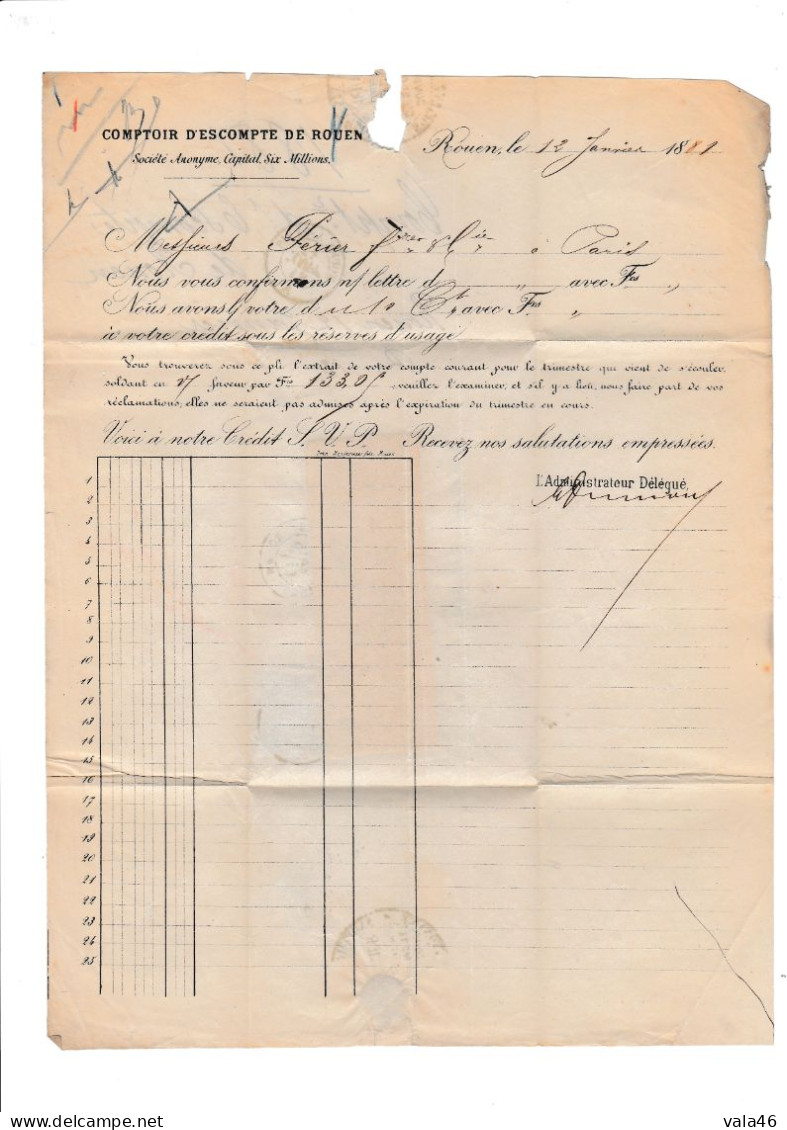 COMPTOIR D'ESCOMPTE DE ROUEN
Société Anonyme, Capital, Six Millions.
Rouen, le 12 Janvier 1881
Messieurs Périer frères & Cie à Paris
Nous vous confirmons n/ lettre d „ avec Fcs „
Nous avons v/ votre d Ct avec Frs „
à votre crédit sous les réserves d'usage
Vous trouverez sous ce pli l'extrait de votre compte courant pour le trimestre qui vient de s'écouler,
soldant en v/ faveur par Frs 133,05 veuillez l'examiner, et s'il y a lieu, nous faire part de vos
réclamations, elles ne seraient pas admises après l'expiration du trimestre en cours.
Voici à notre Crédit S. V. P. Recevez nos salutations empressées.
L'Administrateur Délégué,
1
2
3
4
5
6
7
8
9
10
11
12
13
14
15
16
17
18
19
20
21
22
23
24
25
vala46